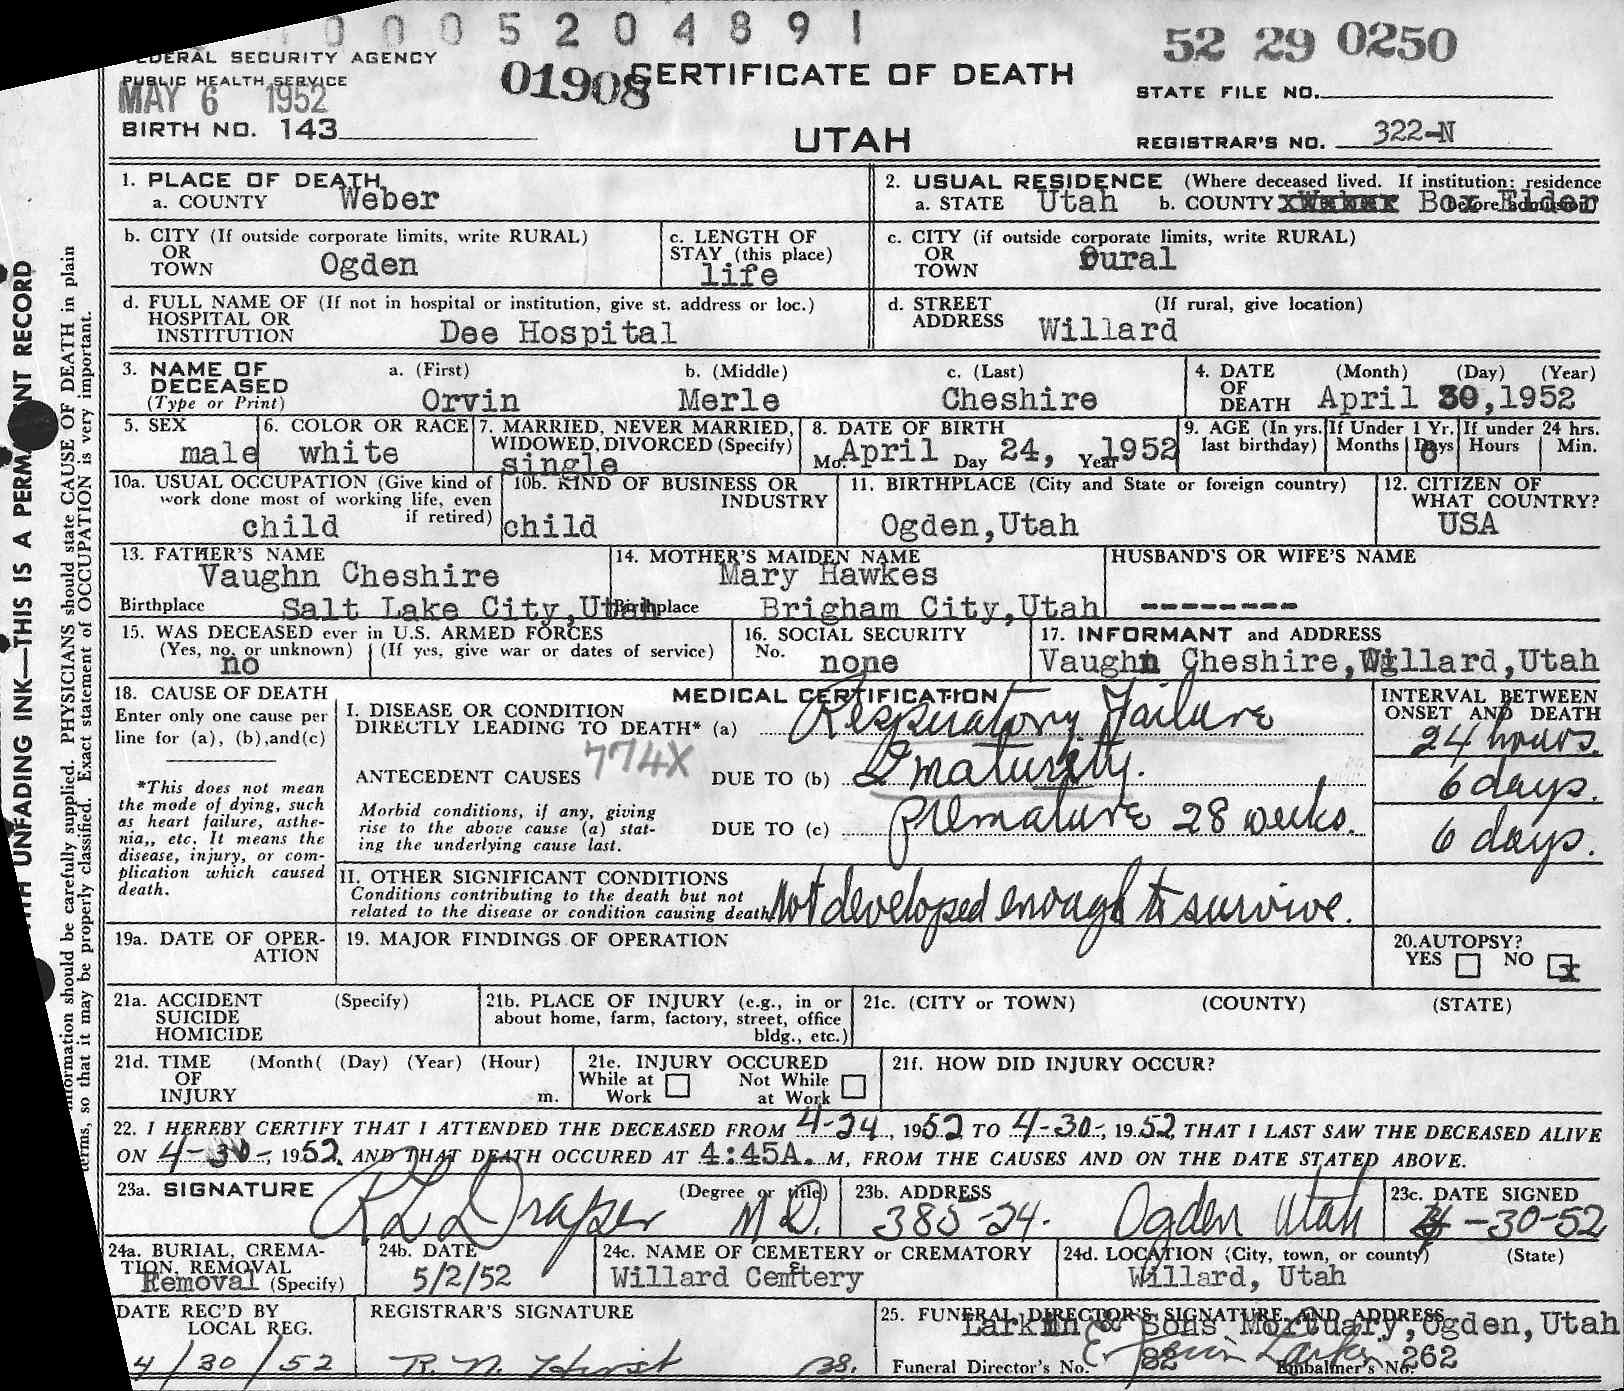 0 0 0 5 2 0 4 8 9 1
52 29 0250
FEDERAL SECURITY AGENCY
PUBLIC HEALTH SERVICE
MAY 6 1952
01908
CERTIFICATE OF DEATH
STATE FILE NO.
BIRTH NO. 143
UTAH
REGISTRAR'S NO. 322-N
1. PLACE OF DEATH
a. COUNTY Weber
2. USUAL RESIDENCE (Where deceased lived. If institution: residence before admission)
a. STATE Utah b. COUNTY Box Elder
b. CITY (If outside corporate limits, write RURAL)
OR
TOWN Ogden
c. LENGTH OF
STAY (this place)
life
c. CITY (if outside corporate limits, write RURAL)
OR
TOWN Rural
d. FULL NAME OF (If not in hospital or institution, give st. address or loc.)
HOSPITAL OR
INSTITUTION Dee Hospital
d. STREET (If rural, give location)
ADDRESS Willard
3. NAME OF
DECEASED
(Type or Print)
a. (First) b. (Middle) c. (Last)
Orvin Merle Cheshire
4. DATE (Month) (Day) (Year)
OF
DEATH April 30,1952
5. SEX
male
6. COLOR OR RACE
white
7. MARRIED, NEVER MARRIED,
WIDOWED, DIVORCED (Specify)
single
8. DATE OF BIRTH
Mo. April Day 24, Year 1952
9. AGE (In yrs. last birthday)
If Under 1 Yr.
Months Days
6
If under 24 hrs.
Hours Min.
10a. USUAL OCCUPATION (Give kind of
work done most of working life, even
if retired)
child
10b. KIND OF BUSINESS OR
INDUSTRY
child
11. BIRTHPLACE (City and State or foreign country)
Ogden,Utah
12. CITIZEN OF
WHAT COUNTRY?
USA
13. FATHER'S NAME
Vaughn Cheshire
Birthplace Salt Lake City,Utah
14. MOTHER'S MAIDEN NAME
Mary Hawkes
Birthplace Brigham City,Utah
HUSBAND'S OR WIFE'S NAME
---------
15. WAS DECEASED ever in U.S. ARMED FORCES
(Yes, no, or unknown) (If yes, give war or dates of service)
no
16. SOCIAL SECURITY
No. none
17. INFORMANT and ADDRESS
Vaughn Cheshire,Willard,Utah
18. CAUSE OF DEATH
Enter only one cause per
line for (a), (b),and(c)
*This does not mean
the mode of dying, such
as heart failure, asthe-
nia,, etc. It means the
disease, injury, or com-
plication which caused
death.
MEDICAL CERTIFICATION
I. DISEASE OR CONDITION
DIRECTLY LEADING TO DEATH* (a) Respiratory Failure
774X
ANTECEDENT CAUSES DUE TO (b) Immaturity.
Morbid conditions, if any, giving
rise to the above cause (a) stat-
ing the underlying cause last.
DUE TO (c) Premature 28 weeks.
INTERVAL BETWEEN
ONSET AND DEATH
24 hours.
6 days.
6 days.
II. OTHER SIGNIFICANT CONDITIONS
Conditions contributing to the death but not
related to the disease or condition causing death
Not developed enough to survive.
19a. DATE OF OPER-
ATION
19. MAJOR FINDINGS OF OPERATION
20.AUTOPSY?
YES NO x
21a. ACCIDENT (Specify)
SUICIDE
HOMICIDE
21b. PLACE OF INJURY (e.g., in or
about home, farm, factory, street, office
bldg., etc.)
21c. (CITY or TOWN) (COUNTY) (STATE)
21d. TIME (Month( (Day) (Year) (Hour)
OF
INJURY m.
21e. INJURY OCCURED
While at Work Not While at Work
21f. HOW DID INJURY OCCUR?
22. I HEREBY CERTIFY THAT I ATTENDED THE DECEASED FROM 4-24, 1952 TO 4-30-, 1952, THAT I LAST SAW THE DECEASED ALIVE
ON 4-30-, 1952, AND THAT DEATH OCCURED AT 4:45A. M, FROM THE CAUSES AND ON THE DATE STATED ABOVE.
23a. SIGNATURE (Degree or title)
R L Draper M D.
23b. ADDRESS
385-24. Ogden Utah
23c. DATE SIGNED
4-30-52
24a. BURIAL, CREMA-
TION, REMOVAL
Removal (Specify)
24b. DATE
5/2/52
24c. NAME OF CEMETERY or CREMATORY
Willard Cemetery
24d. LOCATION (City, town, or county) (State)
Willard, Utah
DATE REC'D BY
LOCAL REG.
4/30/52
REGISTRAR'S SIGNATURE
R. N. Hirst
25. FUNERAL DIRECTOR'S SIGNATURE AND ADDRESS
Larkin & Sons Mortuary,Ogden,Utah
Funeral Director's No. 82 Embalmer's No. 262
UNFADING INK—THIS IS A PERMANENT RECORD
information should be carefully supplied. PHYSICIANS should state CAUSE OF DEATH in plain
terms, so that it may be properly classified. Exact statement of OCCUPATION is very important.